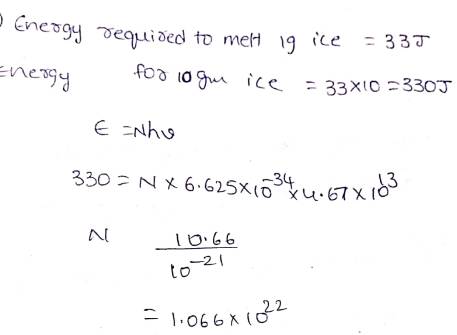 ) Energy required to melt 1g ice = 33J
Energy for 10 gm ice = 33×10 = 330J
E = Nhυ
330 = N × 6.625×10^-34 × 4.67 × 10^13
N 10.66 / 10^-21
= 1.066 × 10^22